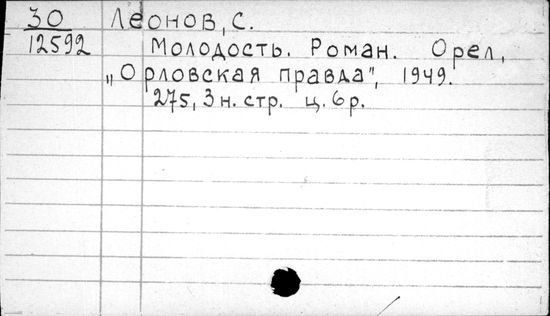 30 Леонов, С.
12592 Молодость. Роман. Орел,
„Орловская правда", 1949.
275, 3 н. стр. ц. 6 р.